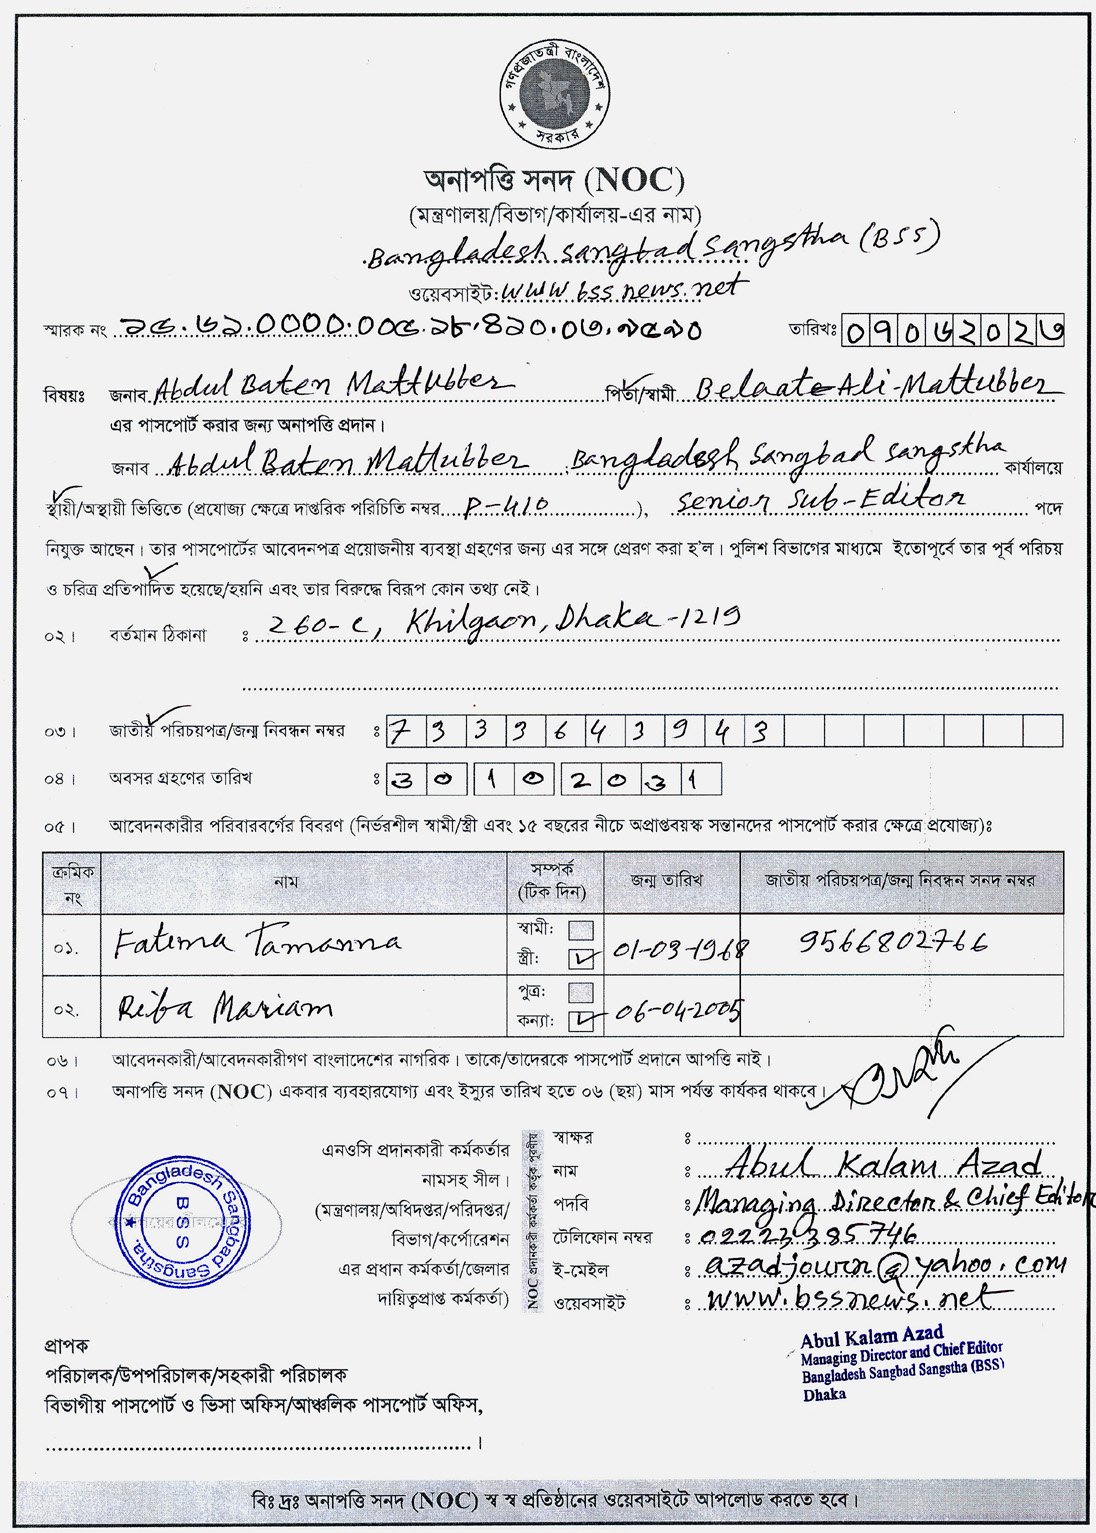 গণপ্রজাতন্ত্রী বাংলাদেশ
সরকার
অনাপত্তি সনদ (NOC)
(মন্ত্রণালয়/বিভাগ/কার্যালয়-এর নাম)
Bangladesh Sangbad Sangstha (BSS)
ওয়েবসাইট: www.bssnews.net
স্মারক নং
তারিখঃ ০৭০৬২০২৩
বিষয়ঃ জনাব Abdul Baten Mattubber পিতা/স্বামী Belaate Ali Mattubber
এর পাসপোর্ট করার জন্য অনাপত্তি প্রদান।
জনাব Abdul Baten Mattubber Bangladesh Sangbad Sangstha কার্যালয়ে
স্থায়ী/অস্থায়ী ভিত্তিতে (প্রযোজ্য ক্ষেত্রে দাপ্তরিক পরিচিতি নম্বর P-410), Senior Sub-Editor পদে
নিযুক্ত আছেন। তার পাসপোর্টের আবেদনপত্র প্রয়োজনীয় ব্যবস্থা গ্রহণের জন্য এর সঙ্গে প্রেরণ করা হ'ল। পুলিশ বিভাগের মাধ্যমে ইতোপূর্বে তার পূর্ব পরিচয়
ও চরিত্র প্রতিপাদিত হয়েছে/হয়নি এবং তার বিরুদ্ধে বিরূপ কোন তথ্য নেই।
০২। বর্তমান ঠিকানা : 260-C, Khilgaon, Dhaka-1219
০৩। জাতীয় পরিচয়পত্র/জন্ম নিবন্ধন নম্বর : 7333643943
০৪। অবসর গ্রহণের তারিখ : 30 10 2031
০৫। আবেদনকারীর পরিবারবর্গের বিবরণ (নির্ভরশীল স্বামী/স্ত্রী এবং ১৫ বছরের নীচে অপ্রাপ্তবয়স্ক সন্তানদের পাসপোর্ট করার ক্ষেত্রে প্রযোজ্য)ঃ
ক্রমিক নং নাম সম্পর্ক (টিক দিন) জন্ম তারিখ জাতীয় পরিচয়পত্র/জন্ম নিবন্ধন সনদ নম্বর
০১. Fatema Tamanna স্বামী: স্ত্রী: 01-03-1968 9566802766
০২. Riba Mariam পুত্র: কন্যা: 06-04-2005
০৬। আবেদনকারী/আবেদনকারীগণ বাংলাদেশের নাগরিক। তাকে/তাদেরকে পাসপোর্ট প্রদানে আপত্তি নাই।
০৭। অনাপত্তি সনদ (NOC) একবার ব্যবহারযোগ্য এবং ইস্যুর তারিখ হতে ০৬ (ছয়) মাস পর্যন্ত কার্যকর থাকবে।
Bangladesh Sangbad Sangstha.
BSS
এনওসি প্রদানকারী কর্মকর্তার
নামসহ সীল।
(মন্ত্রণালয়/অধিদপ্তর/পরিদপ্তর/
বিভাগ/কর্পোরেশন
এর প্রধান কর্মকর্তা/জেলার
দায়িত্বপ্রাপ্ত কর্মকর্তা)
NOC প্রদানকারী কর্মকর্তা কর্তৃক পূরণীয়
স্বাক্ষর :
নাম : Abul Kalam Azad
পদবি : Managing Director & Chief Editor
টেলিফোন নম্বর : 02223385746
ই-মেইল : azadjourn@yahoo.com
ওয়েবসাইট : www.bssnews.net
Abul Kalam Azad
Managing Director and Chief Editor
Bangladesh Sangbad Sangstha (BSS)
Dhaka
প্রাপক
পরিচালক/উপপরিচালক/সহকারী পরিচালক
বিভাগীয় পাসপোর্ট ও ভিসা অফিস/আঞ্চলিক পাসপোর্ট অফিস,
।
বিঃ দ্রঃ অনাপত্তি সনদ (NOC) স্ব স্ব প্রতিষ্ঠানের ওয়েবসাইটে আপলোড করতে হবে।